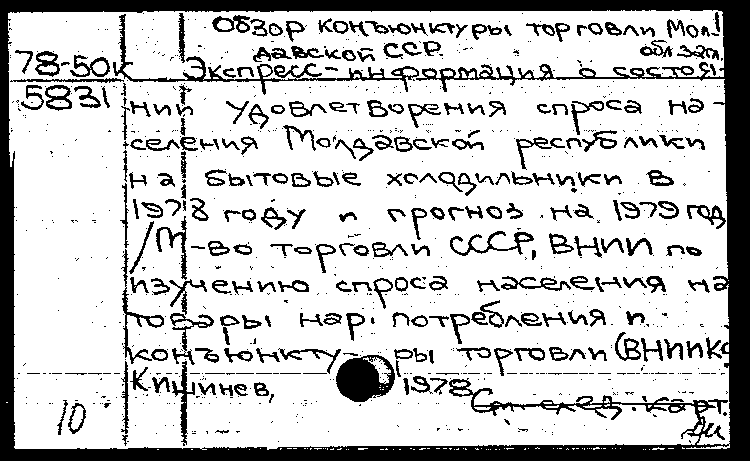 Обзор конъюнктуры торговли Мол-
давской ССР обл. 3-2л.
78-50к Экспресс-информация о состоя-
5831 нии удовлетворения спроса на-
селения Молдавской республики
на бытовые холодильники в
1978 году и прогноз на 1979 год
/М-во торговли СССР, ВНИИ по
изучению спроса населения на
товары нар. потребления и
конъюнкту-ры торговли (ВНИИКС
Кишинев, 1978
См. след. карт.
10